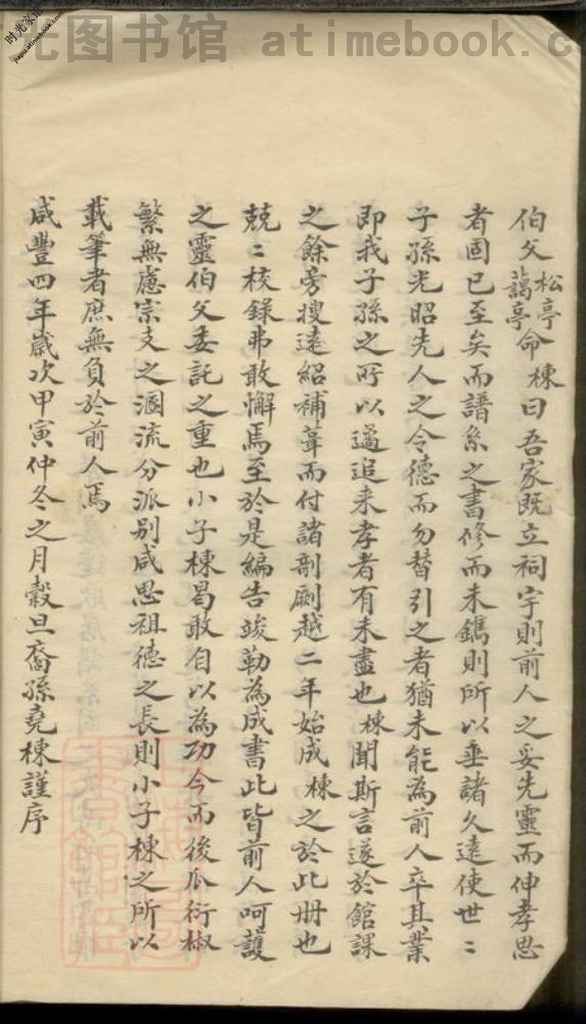 光图书馆 atimebook.c
伯父松亭藹亭命棟曰吾家既立祠宇則前人之妥先靈而伸孝思
者固已至矣而譜系之書修而未鐫則所以垂諸久遠使世〻
子孫光昭先人之令德而勿替引之者猶未能為前人卒其業
即我子孫之所以遹追来孝者有未盡也棟聞斯言遂於館課
之餘旁搜遠紹補葺而付諸剞劂越二年始成棟之於此册也
兢〻校録弗敢懈焉至於是編告竣勒為成書此皆前人呵護
之靈伯父委託之重也小子棟曷敢自以為功今而後瓜衍椒
繁無慮宗支之涸流分派別咸思祖德之長則小子棟之所以
載筆者庶無負於前人焉
咸豐四年歲次甲寅仲冬之月穀旦裔孫堯棟謹序